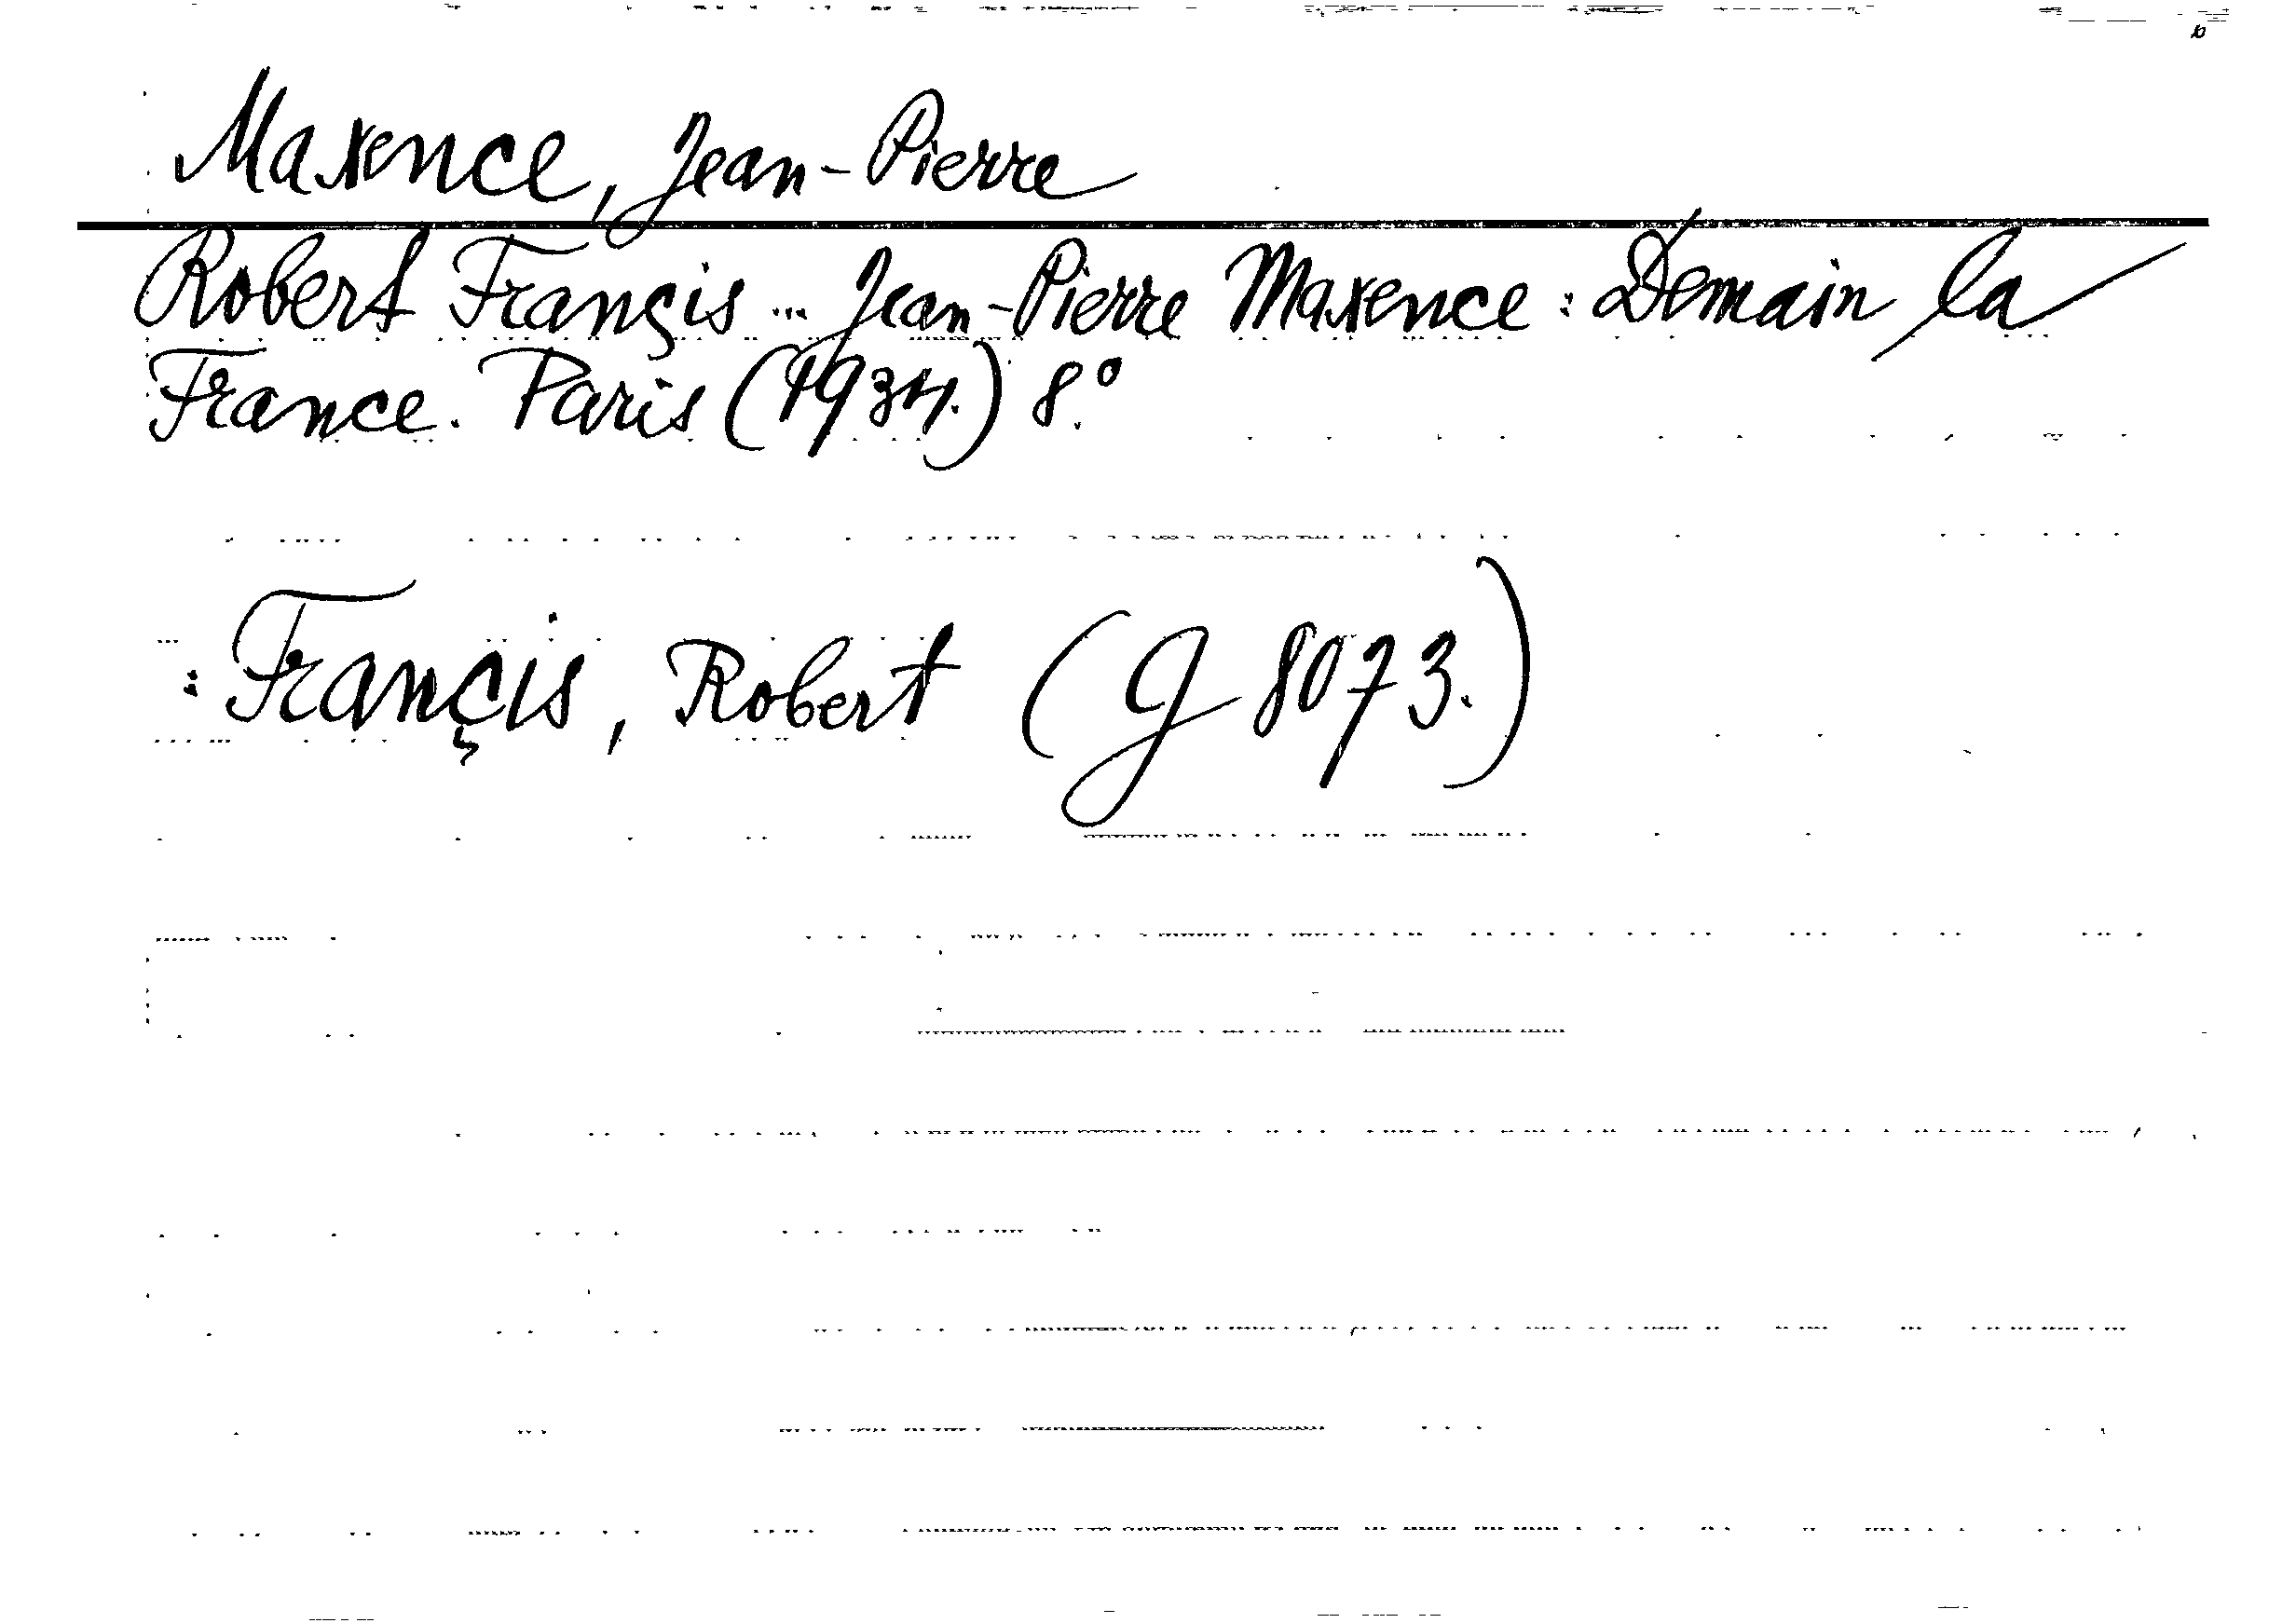 Maxence, Jean-Pierre
Robert Françis ... Jean-Pierre Maxence : Demain la
France. Paris (1934.) 8.°
: Françis, Robert (G 8073.)